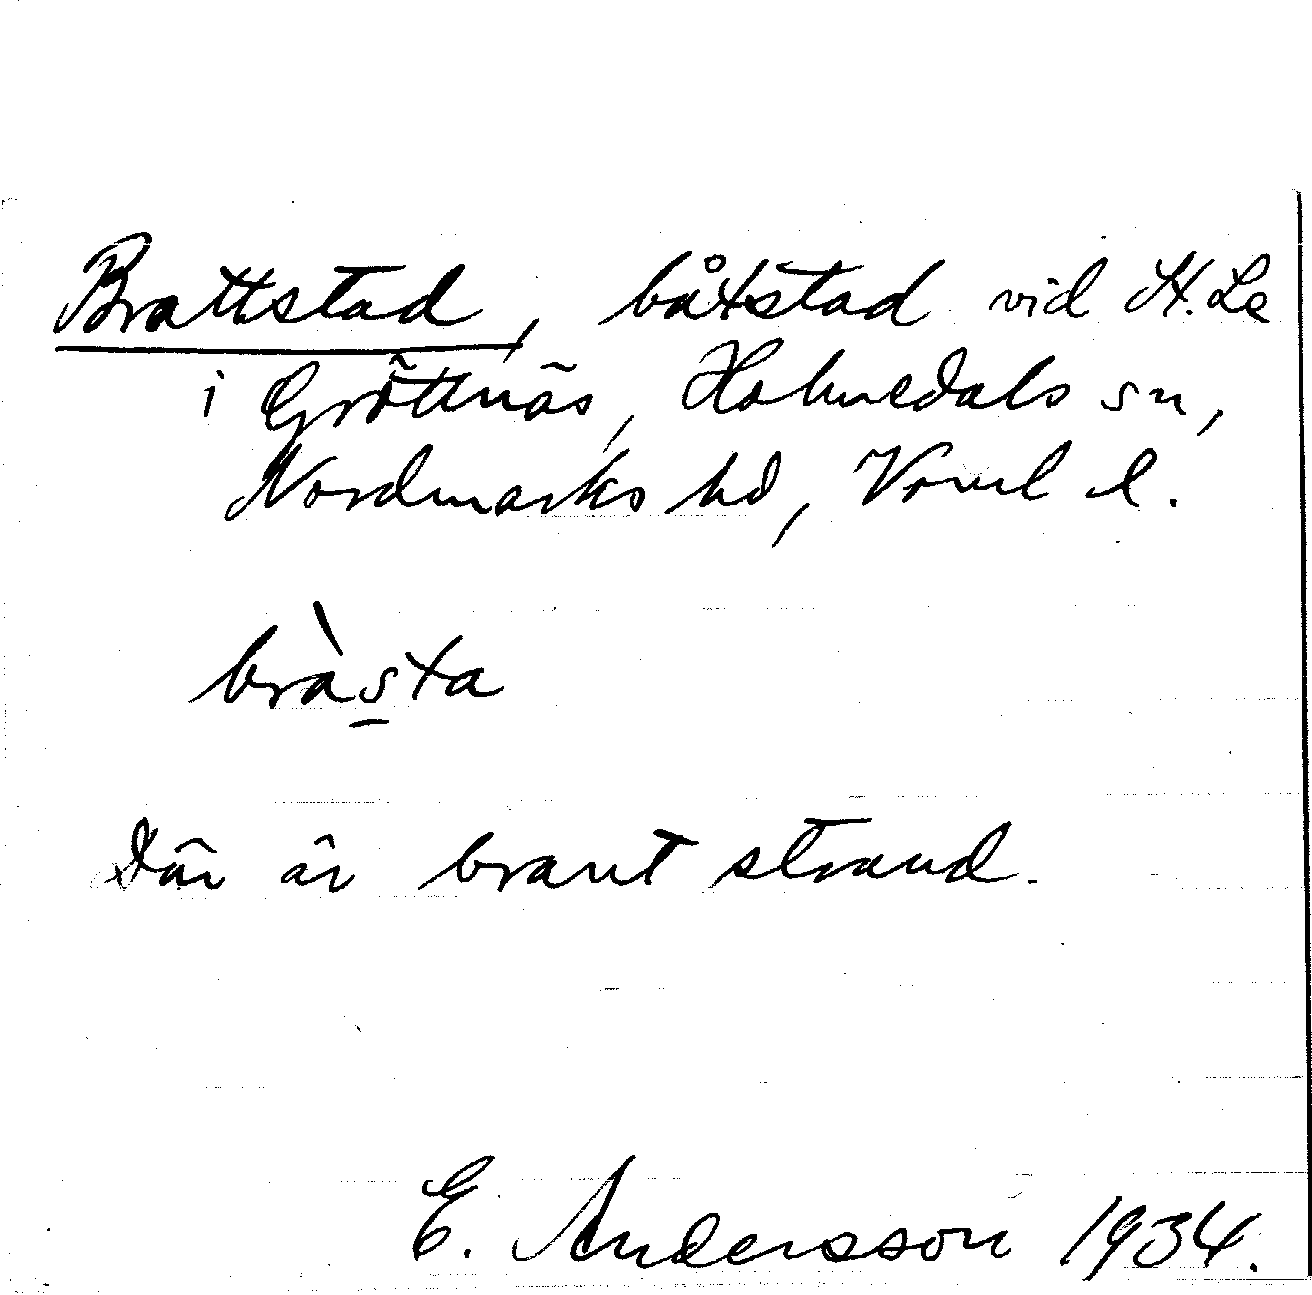 Brattstad, båtstad vid St. Le
i Gröttnäs, Holmedals sn,
Nordmarks hd, Vrml l.
bràs̲ta
Där är brant strand.
E. Andersson 1934.